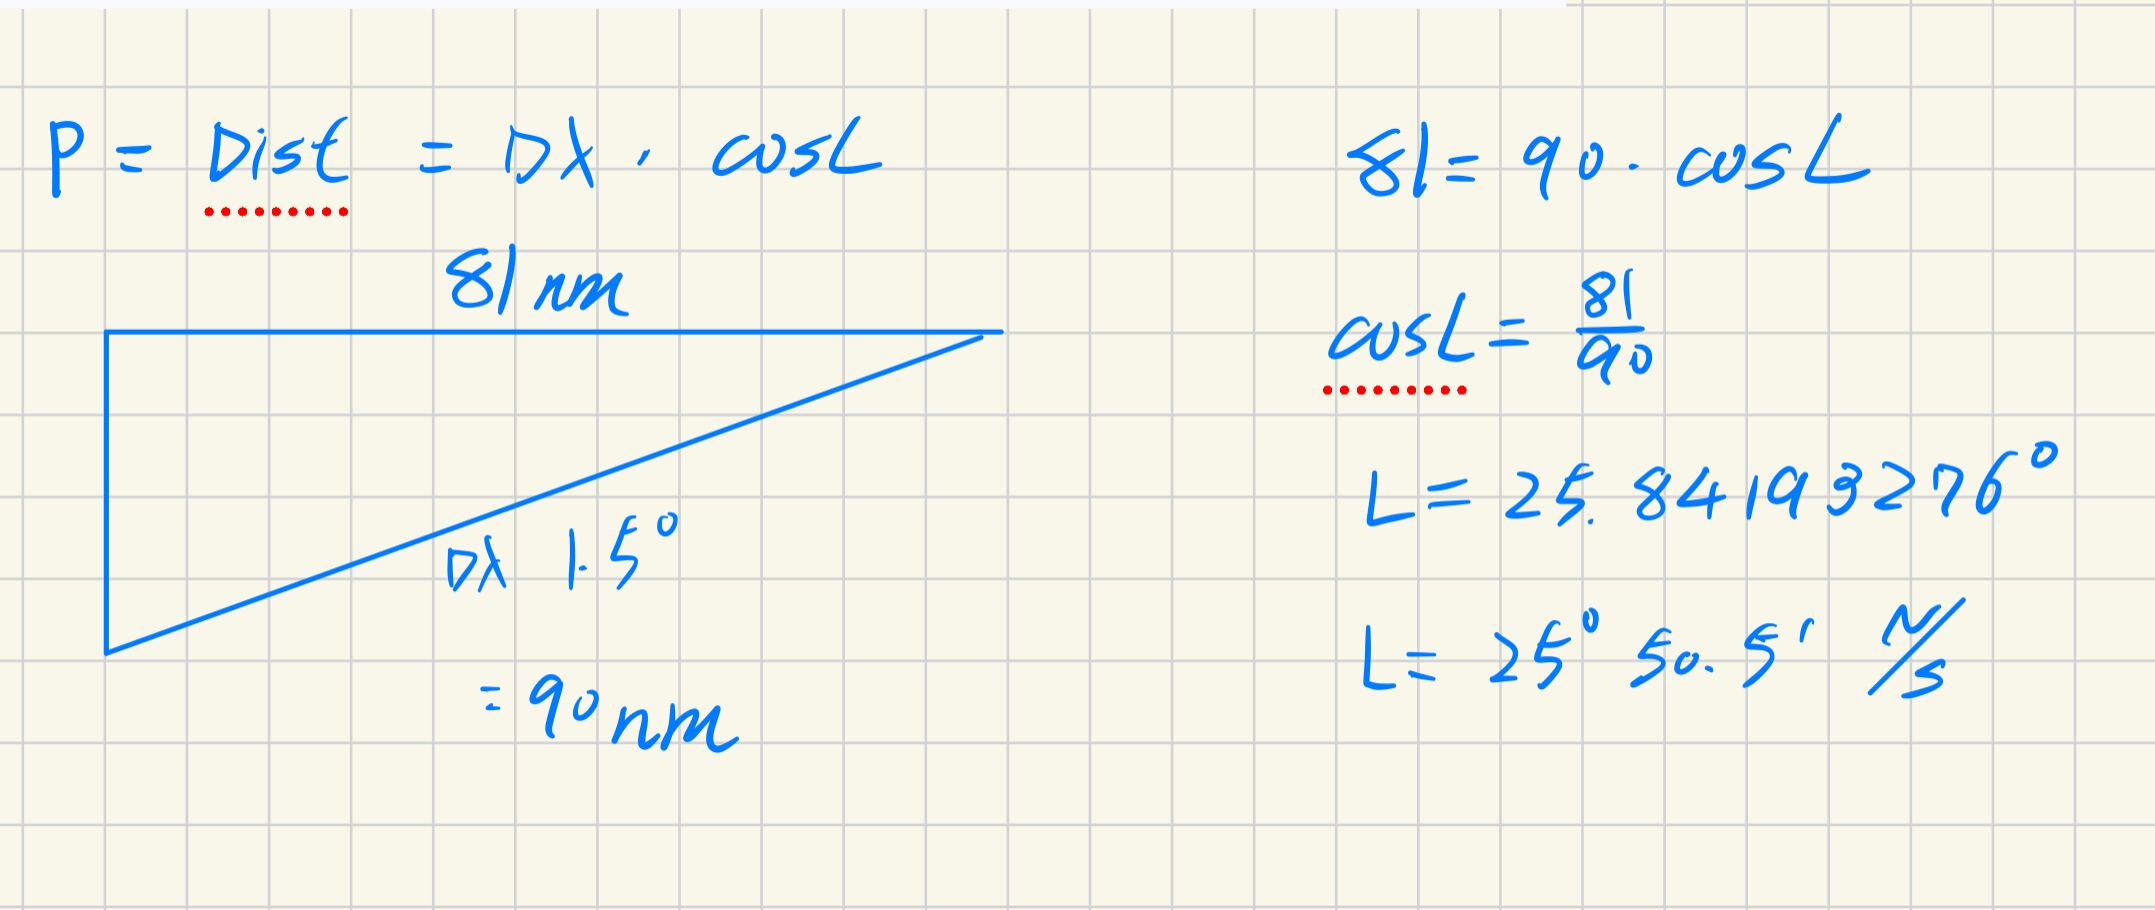 P = Dist = Dλ · cosL
81 nm
Dλ 1.5°
= 90 nm
81 = 90 · cosL
cosL = 81/90
L = 25.84193276°
L = 25° 50.5' N/S